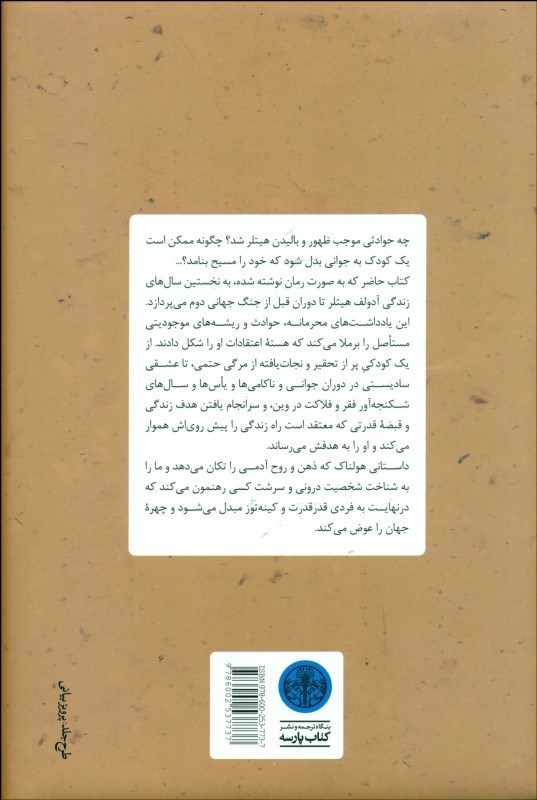 چه حوادثی موجب ظهور و بالیدن هیتلر شد؟ چگونه ممکن است
یک کودک به جوانی بدل شود که خود را مسیح بنامد؟...
کتاب حاضر که به صورت رمان نوشته شده، به نخستین سال‌های
زندگی آدولف هیتلر تا دوران قبل از جنگ جهانی دوم می‌پردازد.
این یادداشت‌های محرمانه، حوادث و ریشه‌های موجودیتی
مستأصل را برملا می‌کند که هستهٔ اعتقادات او را شکل دادند. از
یک کودکی پر از تحقیر و نجات‌یافته از مرگی حتمی، تا عشقی
سادیستی در دوران جوانی و ناکامی‌ها و یأس‌ها و سال‌های
شکنجه‌آور فقر و فلاکت در وین، و سرانجام یافتن هدف زندگی
و قبضهٔ قدرتی که معتقد است راه زندگی را پیش روی‌اش هموار
می‌کند و او را به هدفش می‌رساند.
داستانی هولناک که ذهن و روح آدمی را تکان می‌دهد و ما را
به شناخت شخصیت درونی و سرشت کسی رهنمون می‌کند که
درنهایت به فردی قدرقدرت و کینه‌توز مبدل می‌شود و چهرهٔ
جهان را عوض می‌کند.
بنگاه ترجمه و نشر
کتاب پارسه
ISBN 978-600-253-773-7
9786002537737
طرح جلد: پرویز بیانی